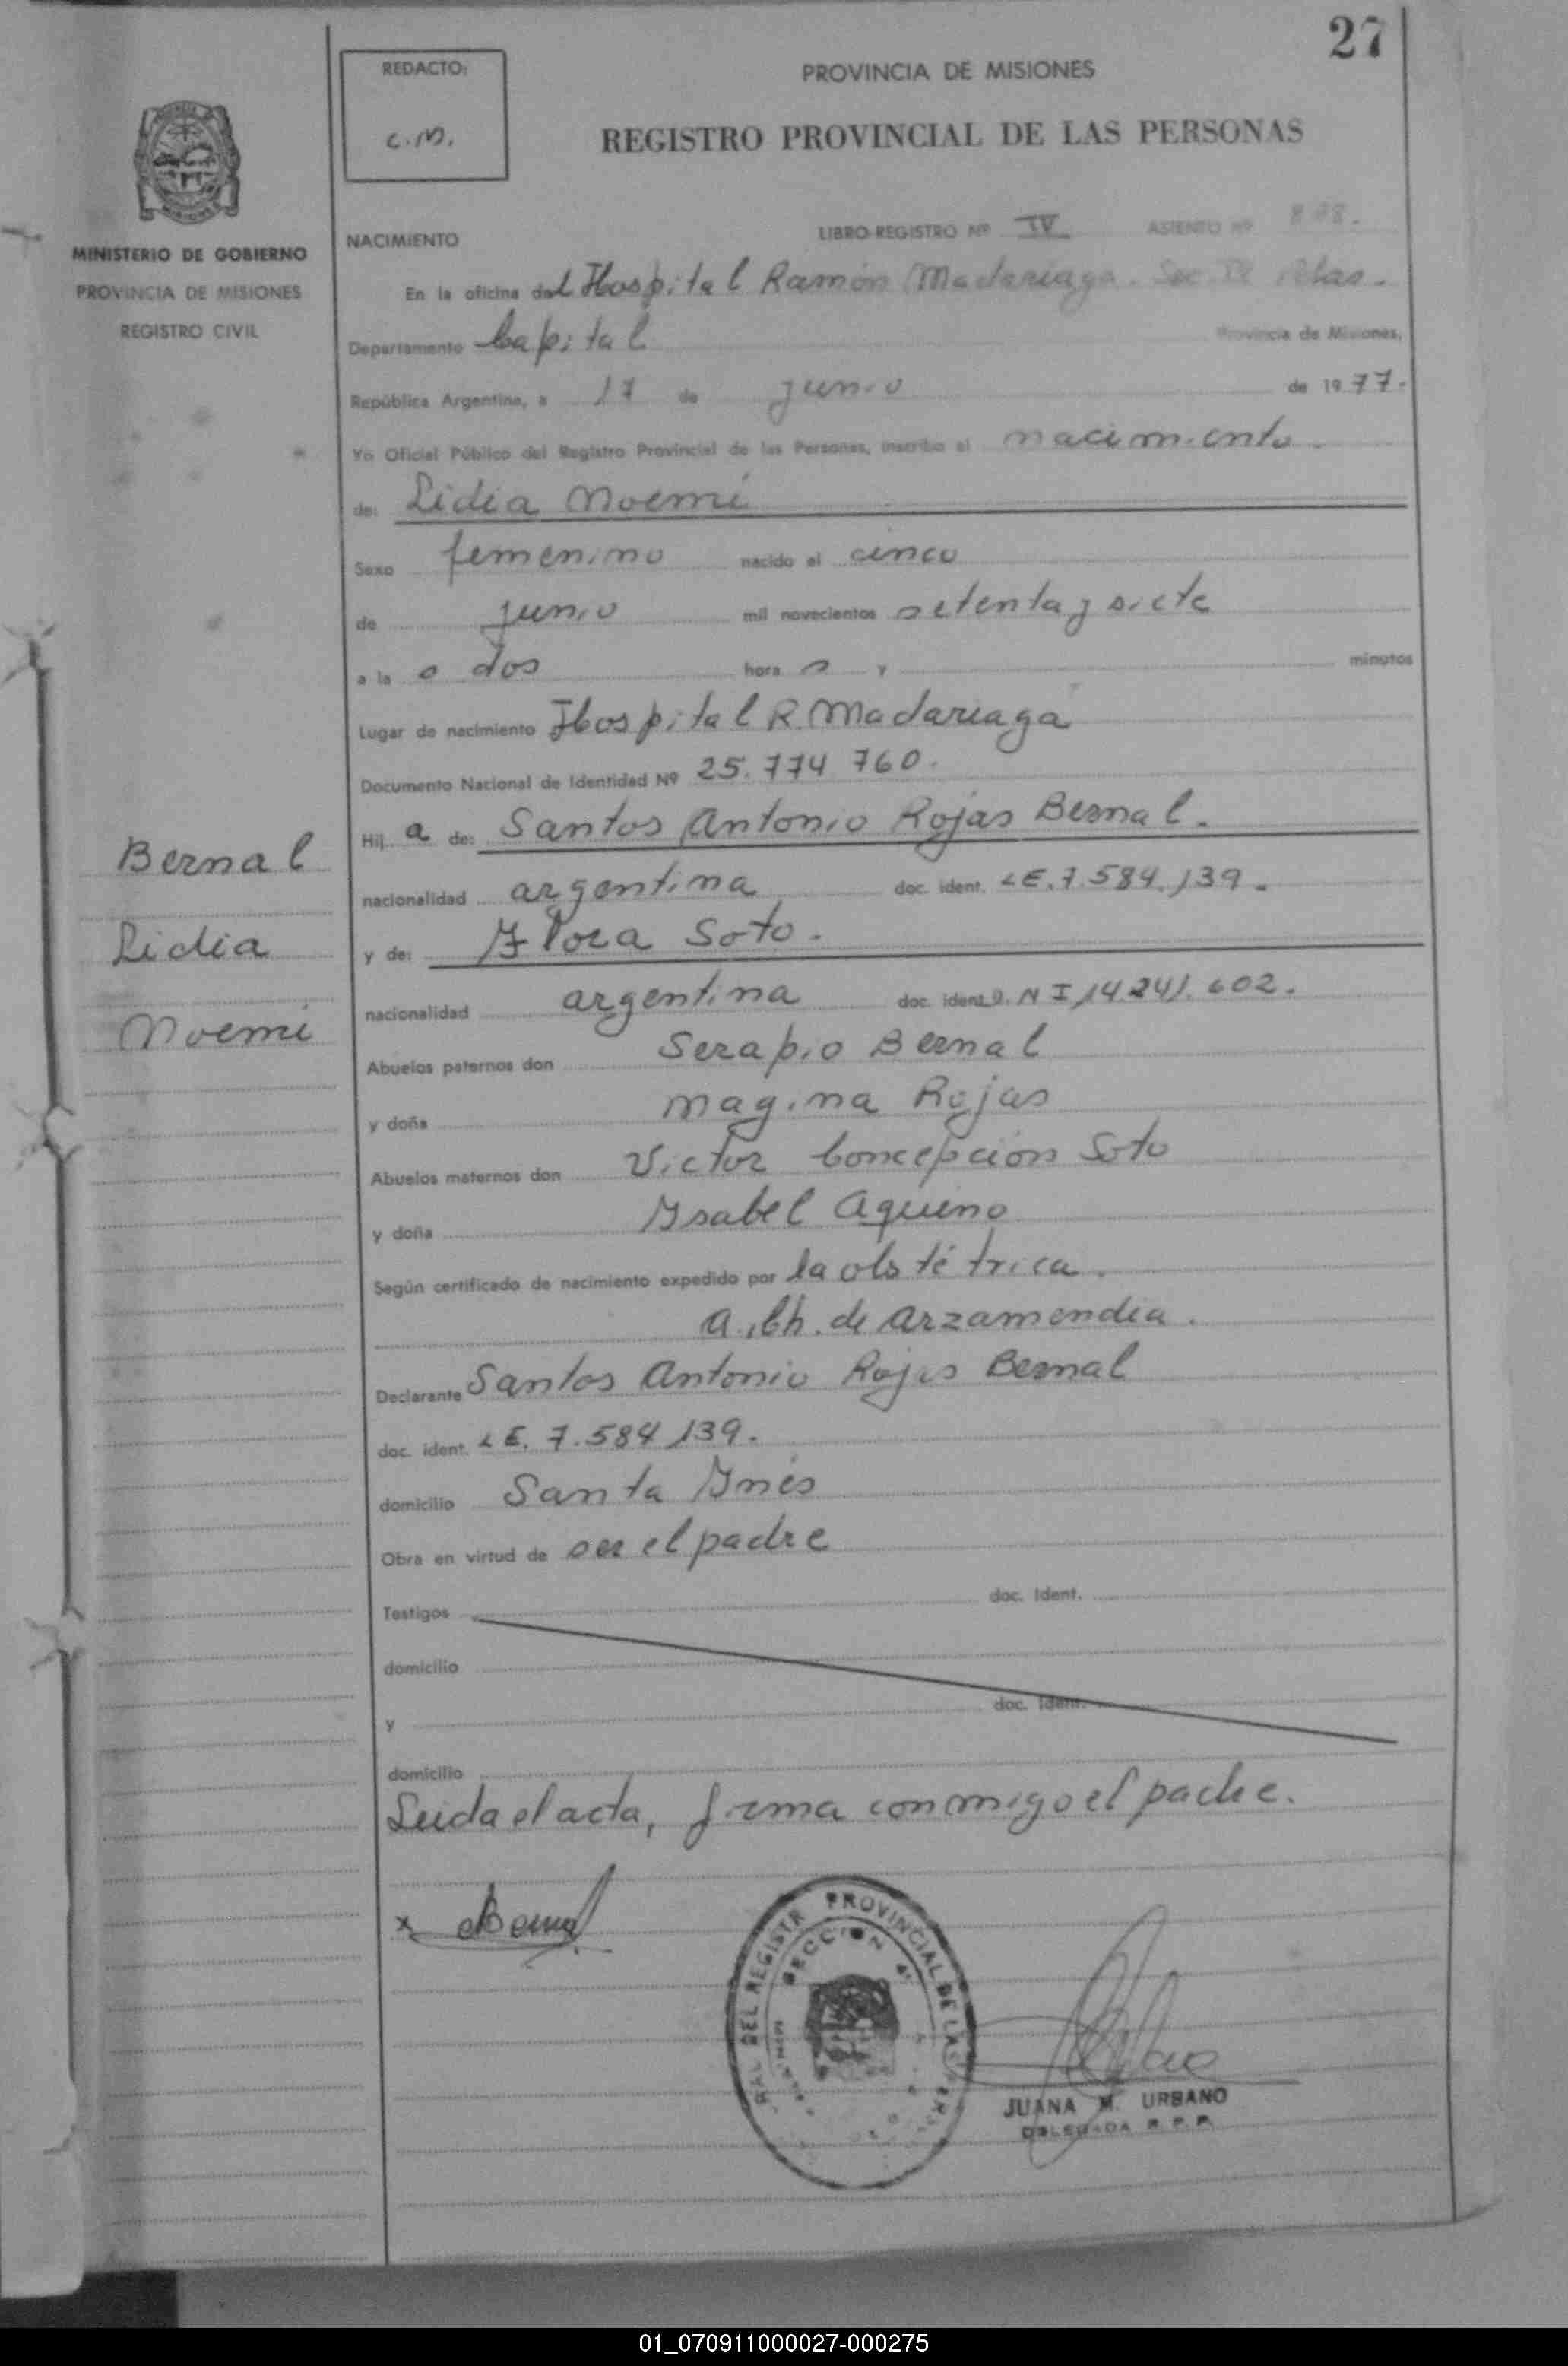 27
REDACTO:
C.M.
PROVINCIA DE MISIONES
REGISTRO PROVINCIAL DE LAS PERSONAS
MINISTERIO DE GOBIERNO
PROVINCIA DE MISIONES
REGISTRO CIVIL
NACIMIENTO LIBRO-REGISTRO Nº IV ASIENTO Nº
En la oficina del Hospital Ramón Madariaga. Sec.
Departamento Capital Provincia de Misiones,
República Argentina, a 17 de junio de 1977.
Yo Oficial Público del Registro Provincial de las Personas, inscribo el nacimiento.
de: Lidia Noemí
Sexo femenino nacido el cinco
de junio mil novecientos setenta y siete
a la s dos hora s y minutos
Lugar de nacimiento Hospital R. Madariaga
Documento Nacional de Identidad Nº 25.774 760.
Hij a de: Santos Antonio Rojas Bernal.
nacionalidad argentina doc. ident. LE. 7.584.139.
y de: Flora Soto.
nacionalidad argentina doc. ident. D.N I 14.241.602.
Abuelos paternos don Serapio Bernal
y doña Magina Rojas
Abuelos maternos don Victor Concepción Soto
y doña Ysabel Aquino
Según certificado de nacimiento expedido por la obstétrica.
A. Ch. de Arzamendia.
Declarante Santos Antonio Rojas Bernal
doc. ident. LE. 7.584 139.
domicilio Santa Ynés
Obra en virtud de ser el padre
Testigos doc. Ident.
domicilio
y doc. Ident.
domicilio
Leida el acta, firma conmigo el padre.
Bernal
Lidia
Noemí
x Bernal
REGISTR PROVINCIAL DE LAS
SECCION
JUANA M. URBANO
DELEGADA R. P. P.
01_070911000027-000275